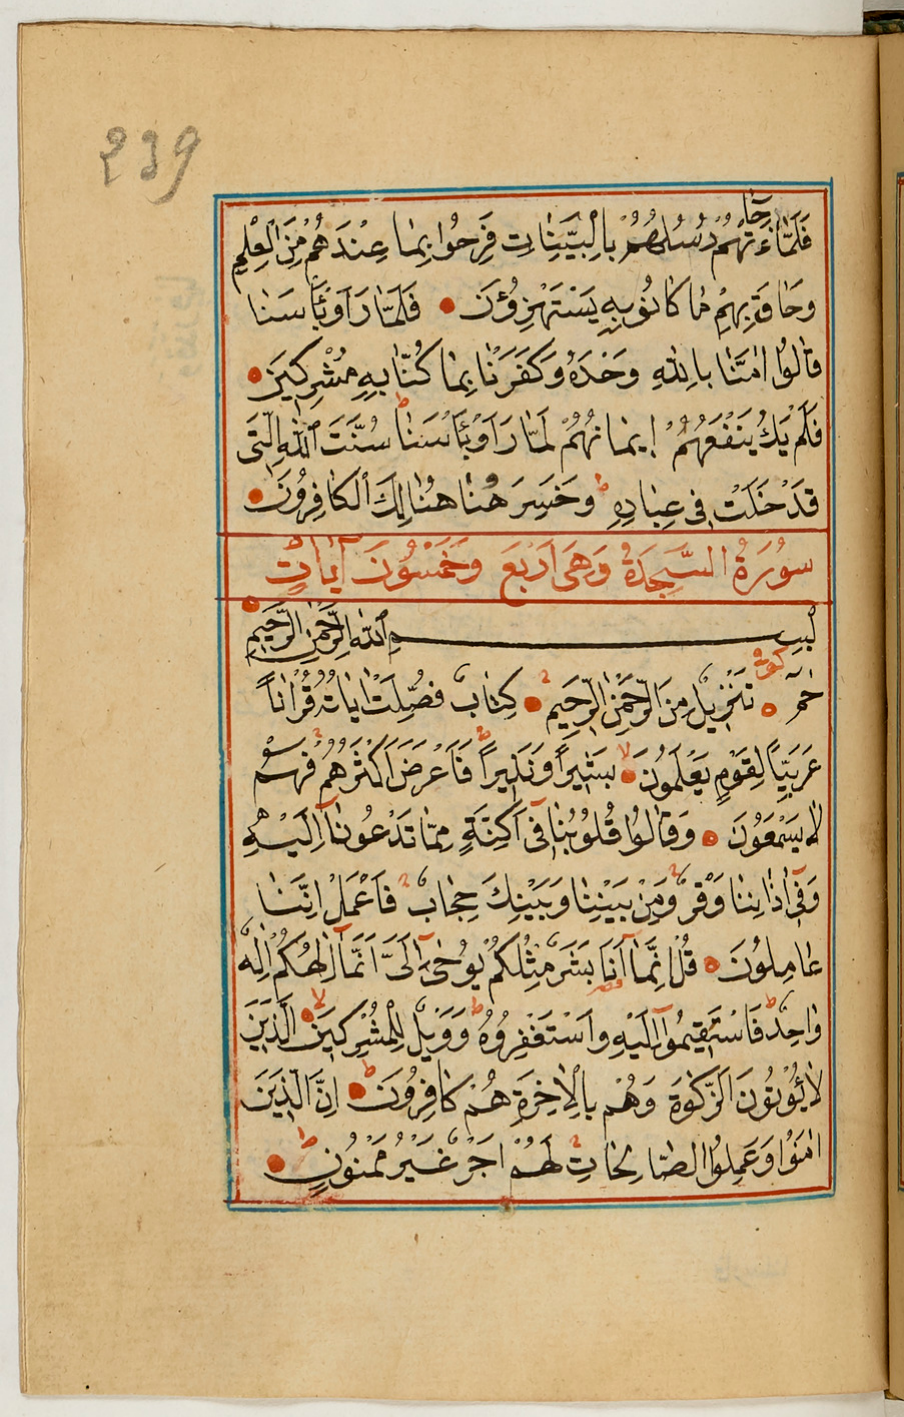 239
فَلَمَّا جَاءَتْهُمْ رُسُلُهُمْ بِالْبَيِّنَاتِ فَرِحُوا بِمَا عِنْدَهُمْ مِنَ الْعِلْمِ
وَحَاقَ بِهِمْ مَا كَانُوا بِهِ يَسْتَهْزِؤُنَ فَلَمَّا رَاَوْ بَأْسَنَا
قَالُوا اٰمَنَّا بِاللّٰهِ وَحْدَهُ وَكَفَرْنَا بِمَا كُنَّا بِهِ مُشْرِكِينَ
فَلَمْ يَكُ يَنْفَعُهُمْ اِيمَانُهُمْ لَمَّا رَاَوْ بَأْسَنَا سُنَّتَ اللّٰهِ الَّتِى
قَدْ خَلَتْ فِى عِبَادِهِ وَخَسِرَ هُنَا هُنَالِكَ الْكَافِرُونَ
سُورَةُ السَّجْدَةُ وَهِىَ اَرْبَعَ وَخَمْسُونَ آيَاتٍ
بِسْمِ اللّٰهِ الرَّحْمٰنِ الرَّحِيمِ
حٰمٓ كوفى تَنْزِيلٌ مِنَ الرَّحْمٰنِ الرَّحِيمِ كِتَابٌ فُصِّلَتْ اٰيَاتُهُ قُرْاٰناً
عَرَبِيًّا لِقَوْمٍ يَعْلَمُونَ بَشِيراً وَنَذِيراً فَاَعْرَضَ اَكْثَرُهُمْ فَهُمْ
لَا يَسْمَعُونَ وَقَالُوا قُلُوبُنَا فِى اَكِنَّةٍ مِمَّا تَدْعُونَا اِلَيْهِ
وَفِى اٰذَانِنَا وَقْرٌ وَمِنْ بَيْنِنَا وَبَيْنِكَ حِجَابٌ فَاعْمَلْ اِنَّنَا
عَامِلُونَ قُلْ اِنَّمَا اَنَا بَشَرٌ مِثْلُكُمْ يُوحٰى اِلَىَّ اَنَّمَا اِلٰهُكُمْ اِلٰهٌ
وَاحِدٌ فَاسْتَقِيمُوا اِلَيْهِ وَاسْتَغْفِرُوهُ وَوَيْلٌ لِلْمُشْرِكِينَ الَّذِينَ
لَا يُؤْتُونَ الزَّكٰوةَ وَهُمْ بِالْاٰخِرَةِ هُمْ كَافِرُونَ اِنَّ الَّذِينَ
اٰمَنُوا وَعَمِلُوا الصَّالِحَاتِ لَهُمْ اَجْرٌ غَيْرُ مَمْنُونٍ